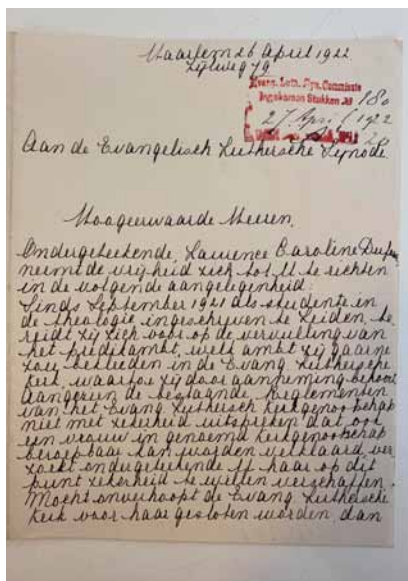 Haarlem 26 April 1922
Zijlweg 79
Evang. Luth. Syn. Commissie
Ingekomen Stukken No 180
27 April 1922
Aan de Evangelisch Luthersche Synode
Hoogeerwaarde Heeren,
Ondergeteekende, Laurence Caroline
neemt de vrijheid zich tot U te richten
in de volgende aangelegenheid:
Sinds September 1921 als studente in
de theologie ingeschreven te Leiden, be
reidt zij zich voor op de vervulling van
het predikambt, welk ambt zij gaarne
zou bekleeden in de Evang. Luthersche
Kerk, waartoe zij door aanneming behoort
Aangezien de bestaande Reglementen
van het Evang. Luthersch Kerkgenootschap
niet met zekerheid uitspreken dat ook
een vrouw in genoemd Kerkgenootschap
beroepbaar kan worden verklaard ver
zoekt ondergeteekende U haar op dit
punt zekerheid te willen verschaffen.
Mocht onverhoopt de Evang. Luthersche
Kerk voor haar gesloten worden, dan